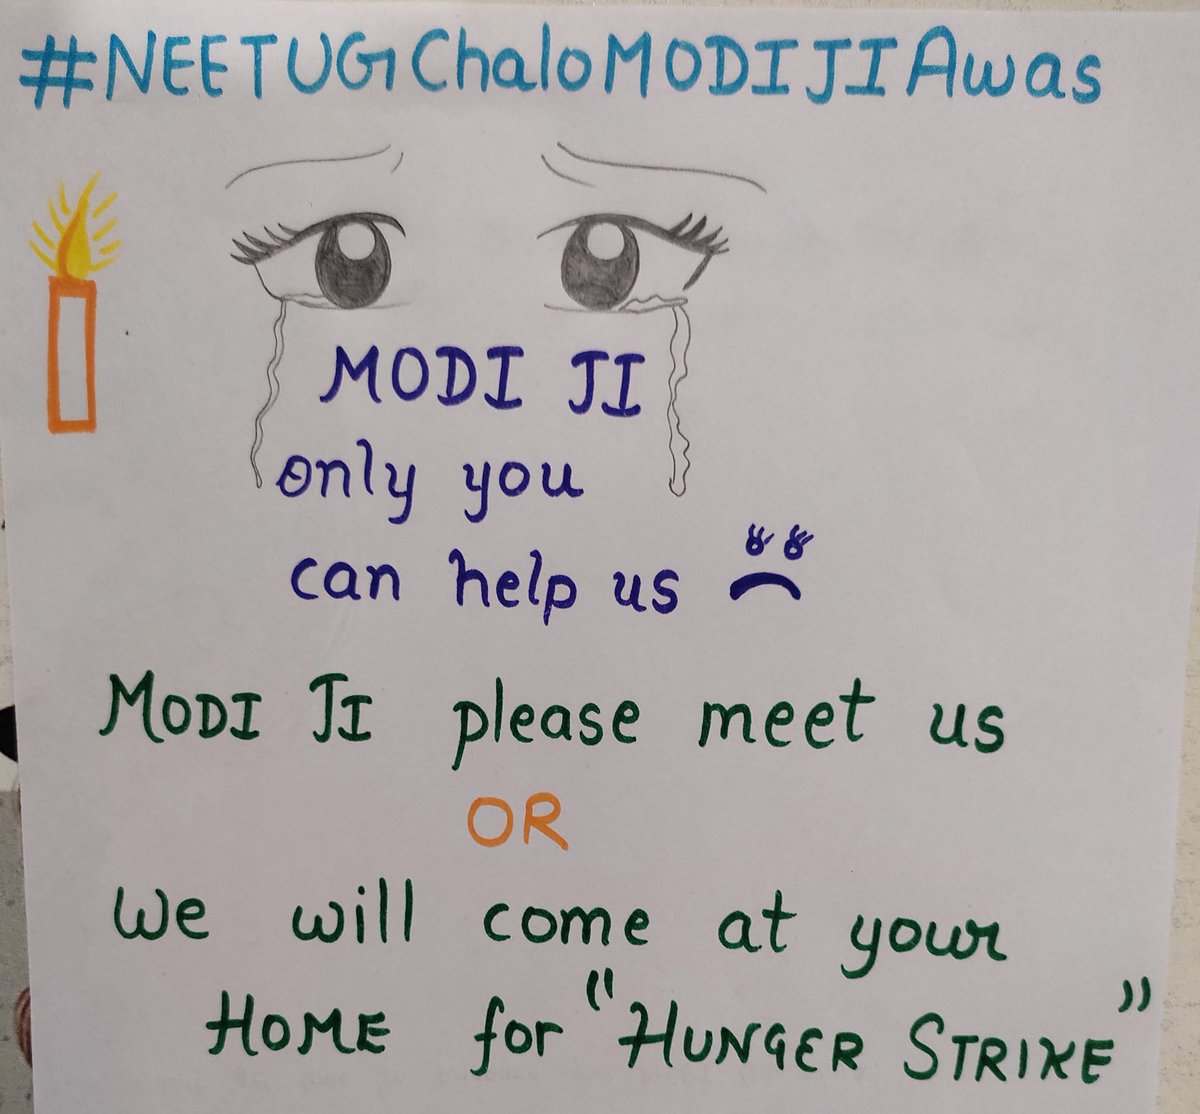 #NEETUGChaloMODIJIAwas
MODI JI
only you
can help us
MODI JI please meet us
OR
We will come at your
HOME for "HUNGER STRIKE"